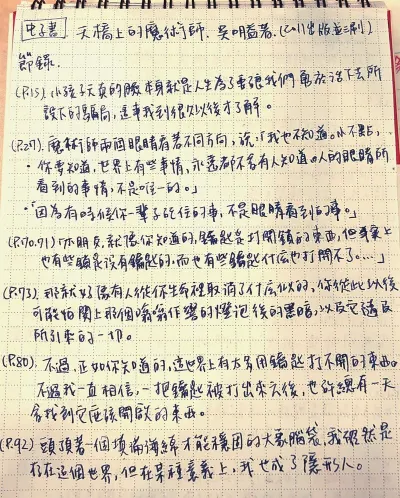 电子書 天橋上的魔術師. 吳明益著. (2011出版並三刷)
節錄.
(P.15). 小孩子天真的臉本身就是人生為了要讓我們勇於活下去所
設下的騙局, 這事我到很久以後才了解。
(P.27). 魔術師兩個眼睛看著不同方向, 說:「我也不知道。小不點,
你要知道, 世界上有些事情, 永遠都不會有人知道。人的眼睛所
看到的事情, 不是唯一的。」
·「因為有時候你一輩子記住的事, 不是眼睛看到的事。」
(P.70.71) 小朋友, 就像你知道的, 鑰匙是打開鎖的東西, 但事實上
也有些鎖是沒有鑰匙的, 而也有些鑰匙什麼也打開不了。...」
(P.73). 那就好像有人從你生命裡取消了什麼似的, 你從此以後
可能怕關上那個嗡嗡作響的燈泡後的黑暗, 以及它隨及
所引來的一切。
(P.80). 不過, 正如你知道的, 這世界上有太多用鑰匙打不開的東西。
不過我一直相信, 一把鑰匙被打出來以後, 也許總有一天
會找到它應該開啟的東西。
(P.92) 頭頂著一個項備訓練才能穩固的大象腦袋, 我雖然是
存在這個世界, 但在某種意義上, 我也成了隱形人。